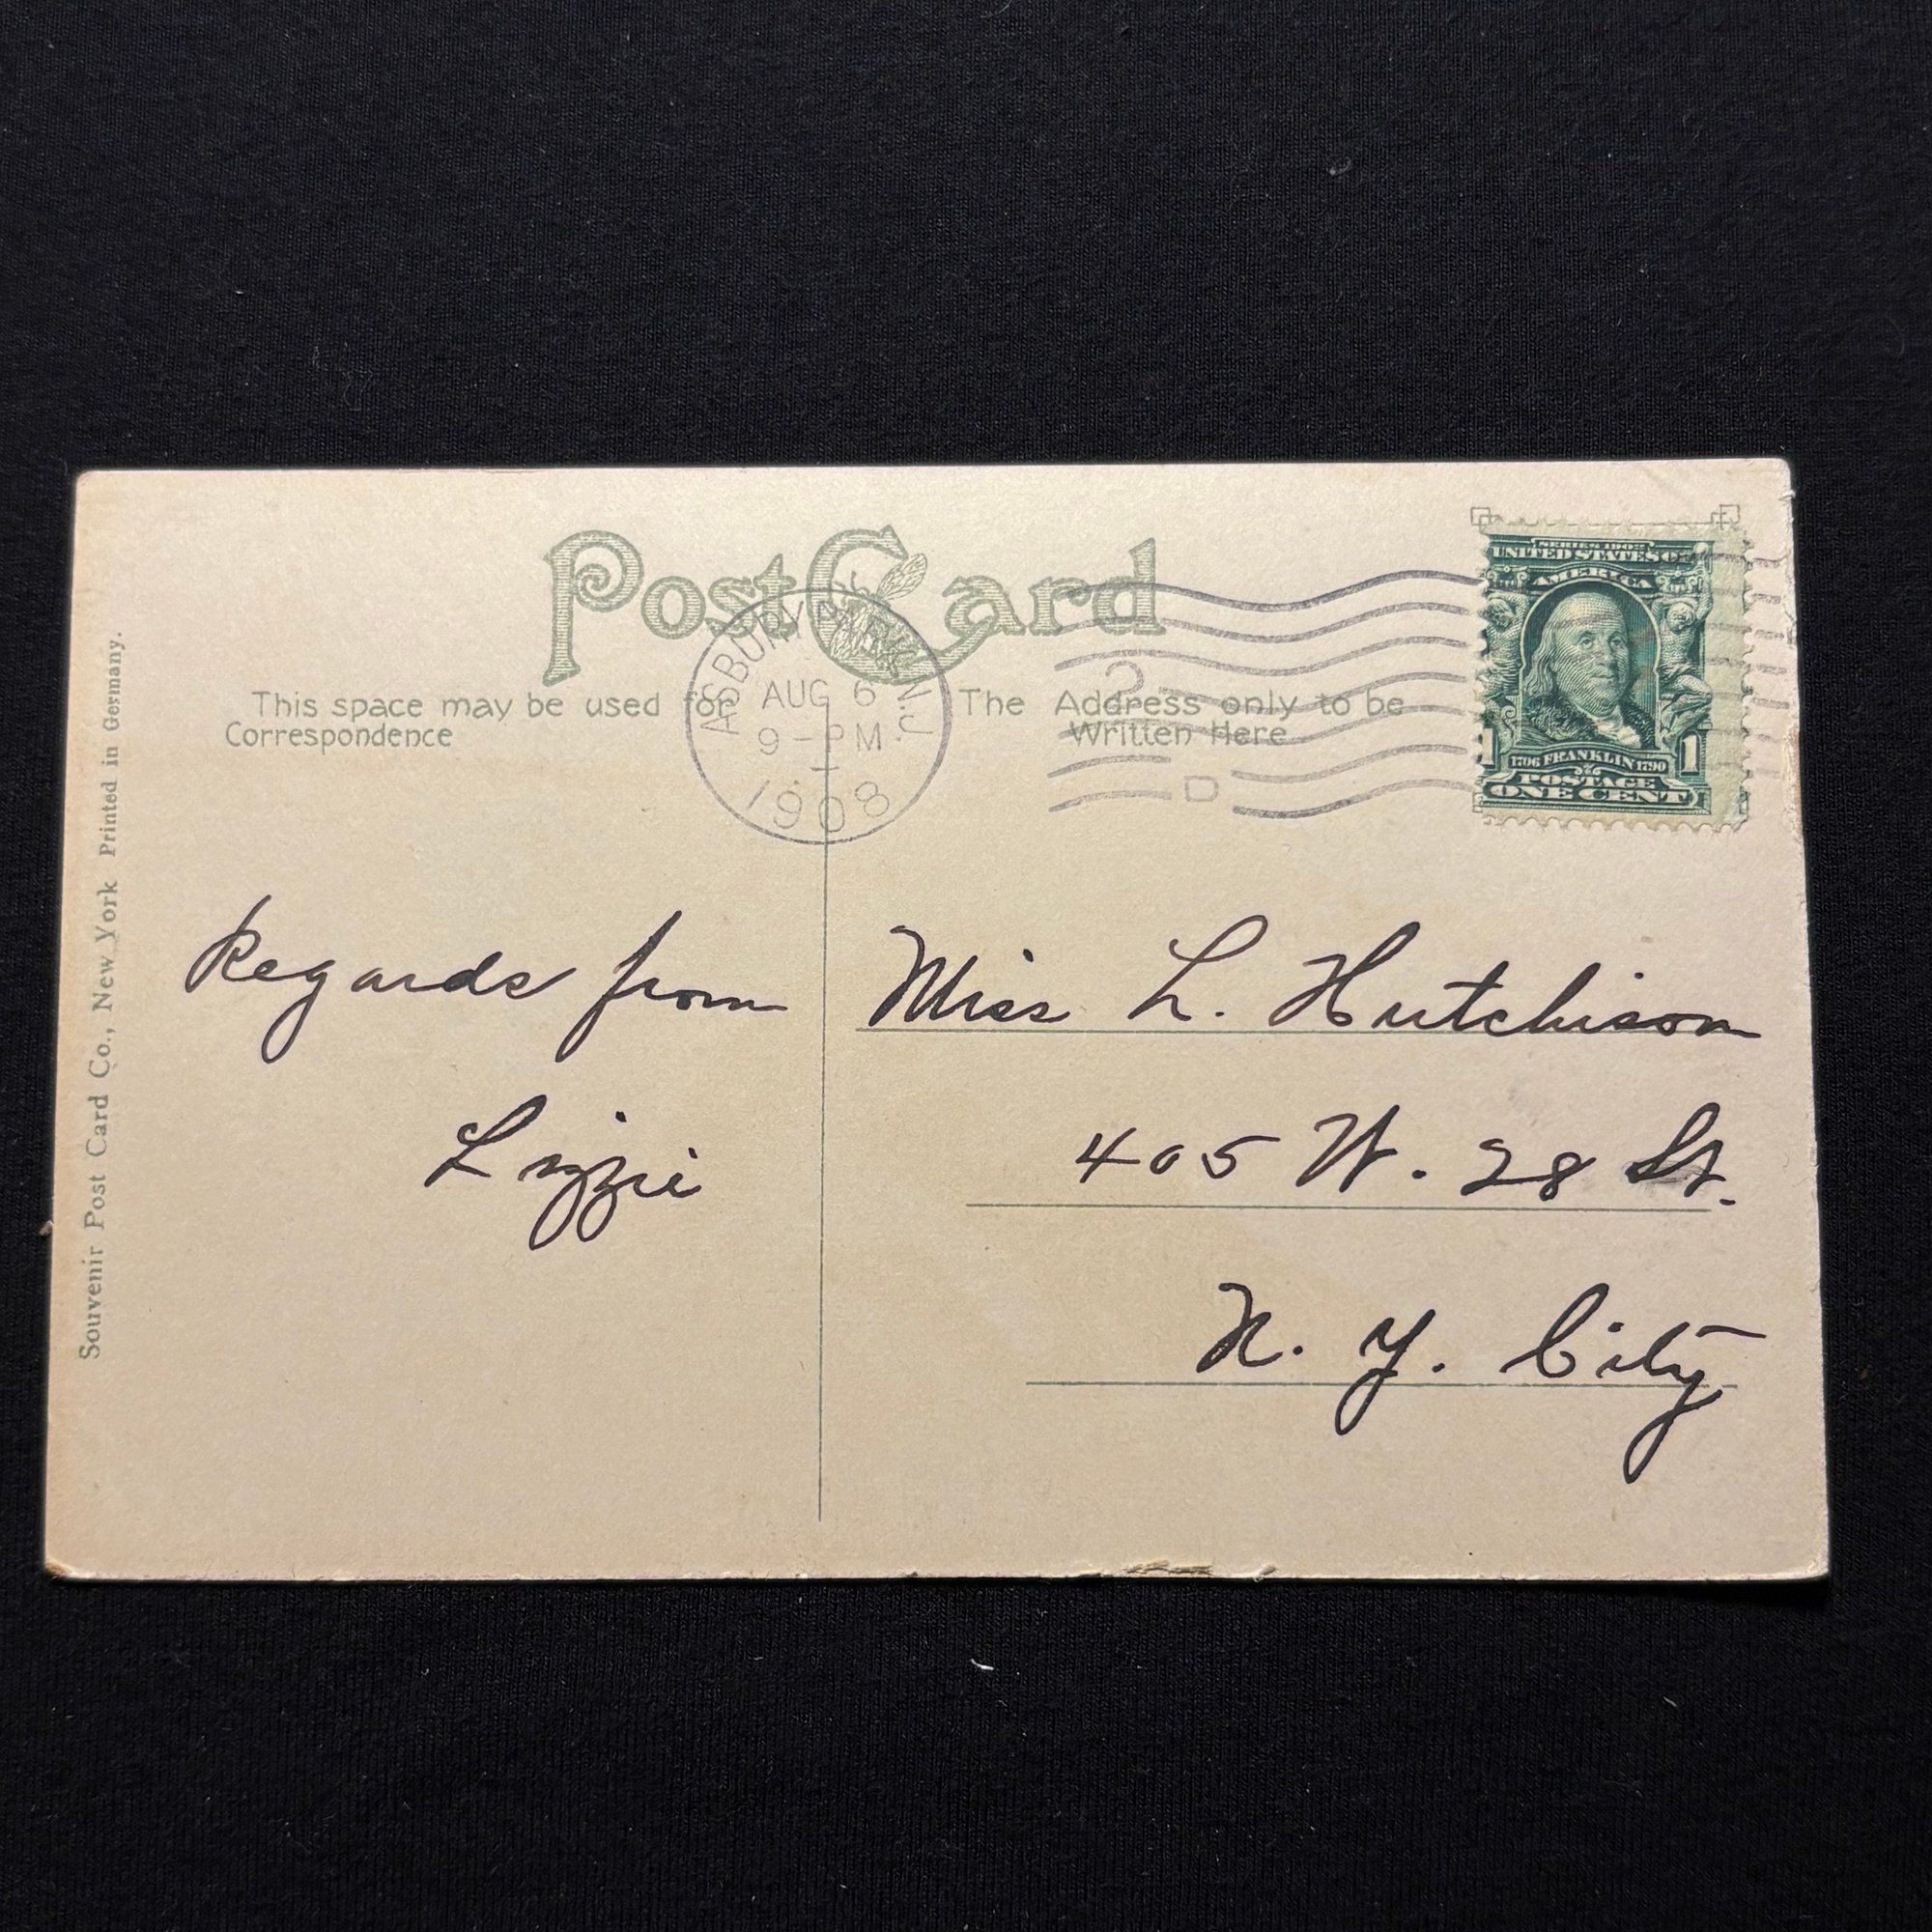 Post Card
This space may be used for
Correspondence
The Address only to be
Written Here
ASBURY PARK, N.J.
AUG 6
9 - PM
1908
D
SERIES 1902
UNITED STATES OF
AMERICA
1706 FRANKLIN 1790
1 1
POSTAGE
ONE CENT
Regards from
Lizzie
Miss L. Hutchison
405 W. 28 St.
N. Y. City
Souvenir Post Card Co., New York Printed in Germany.